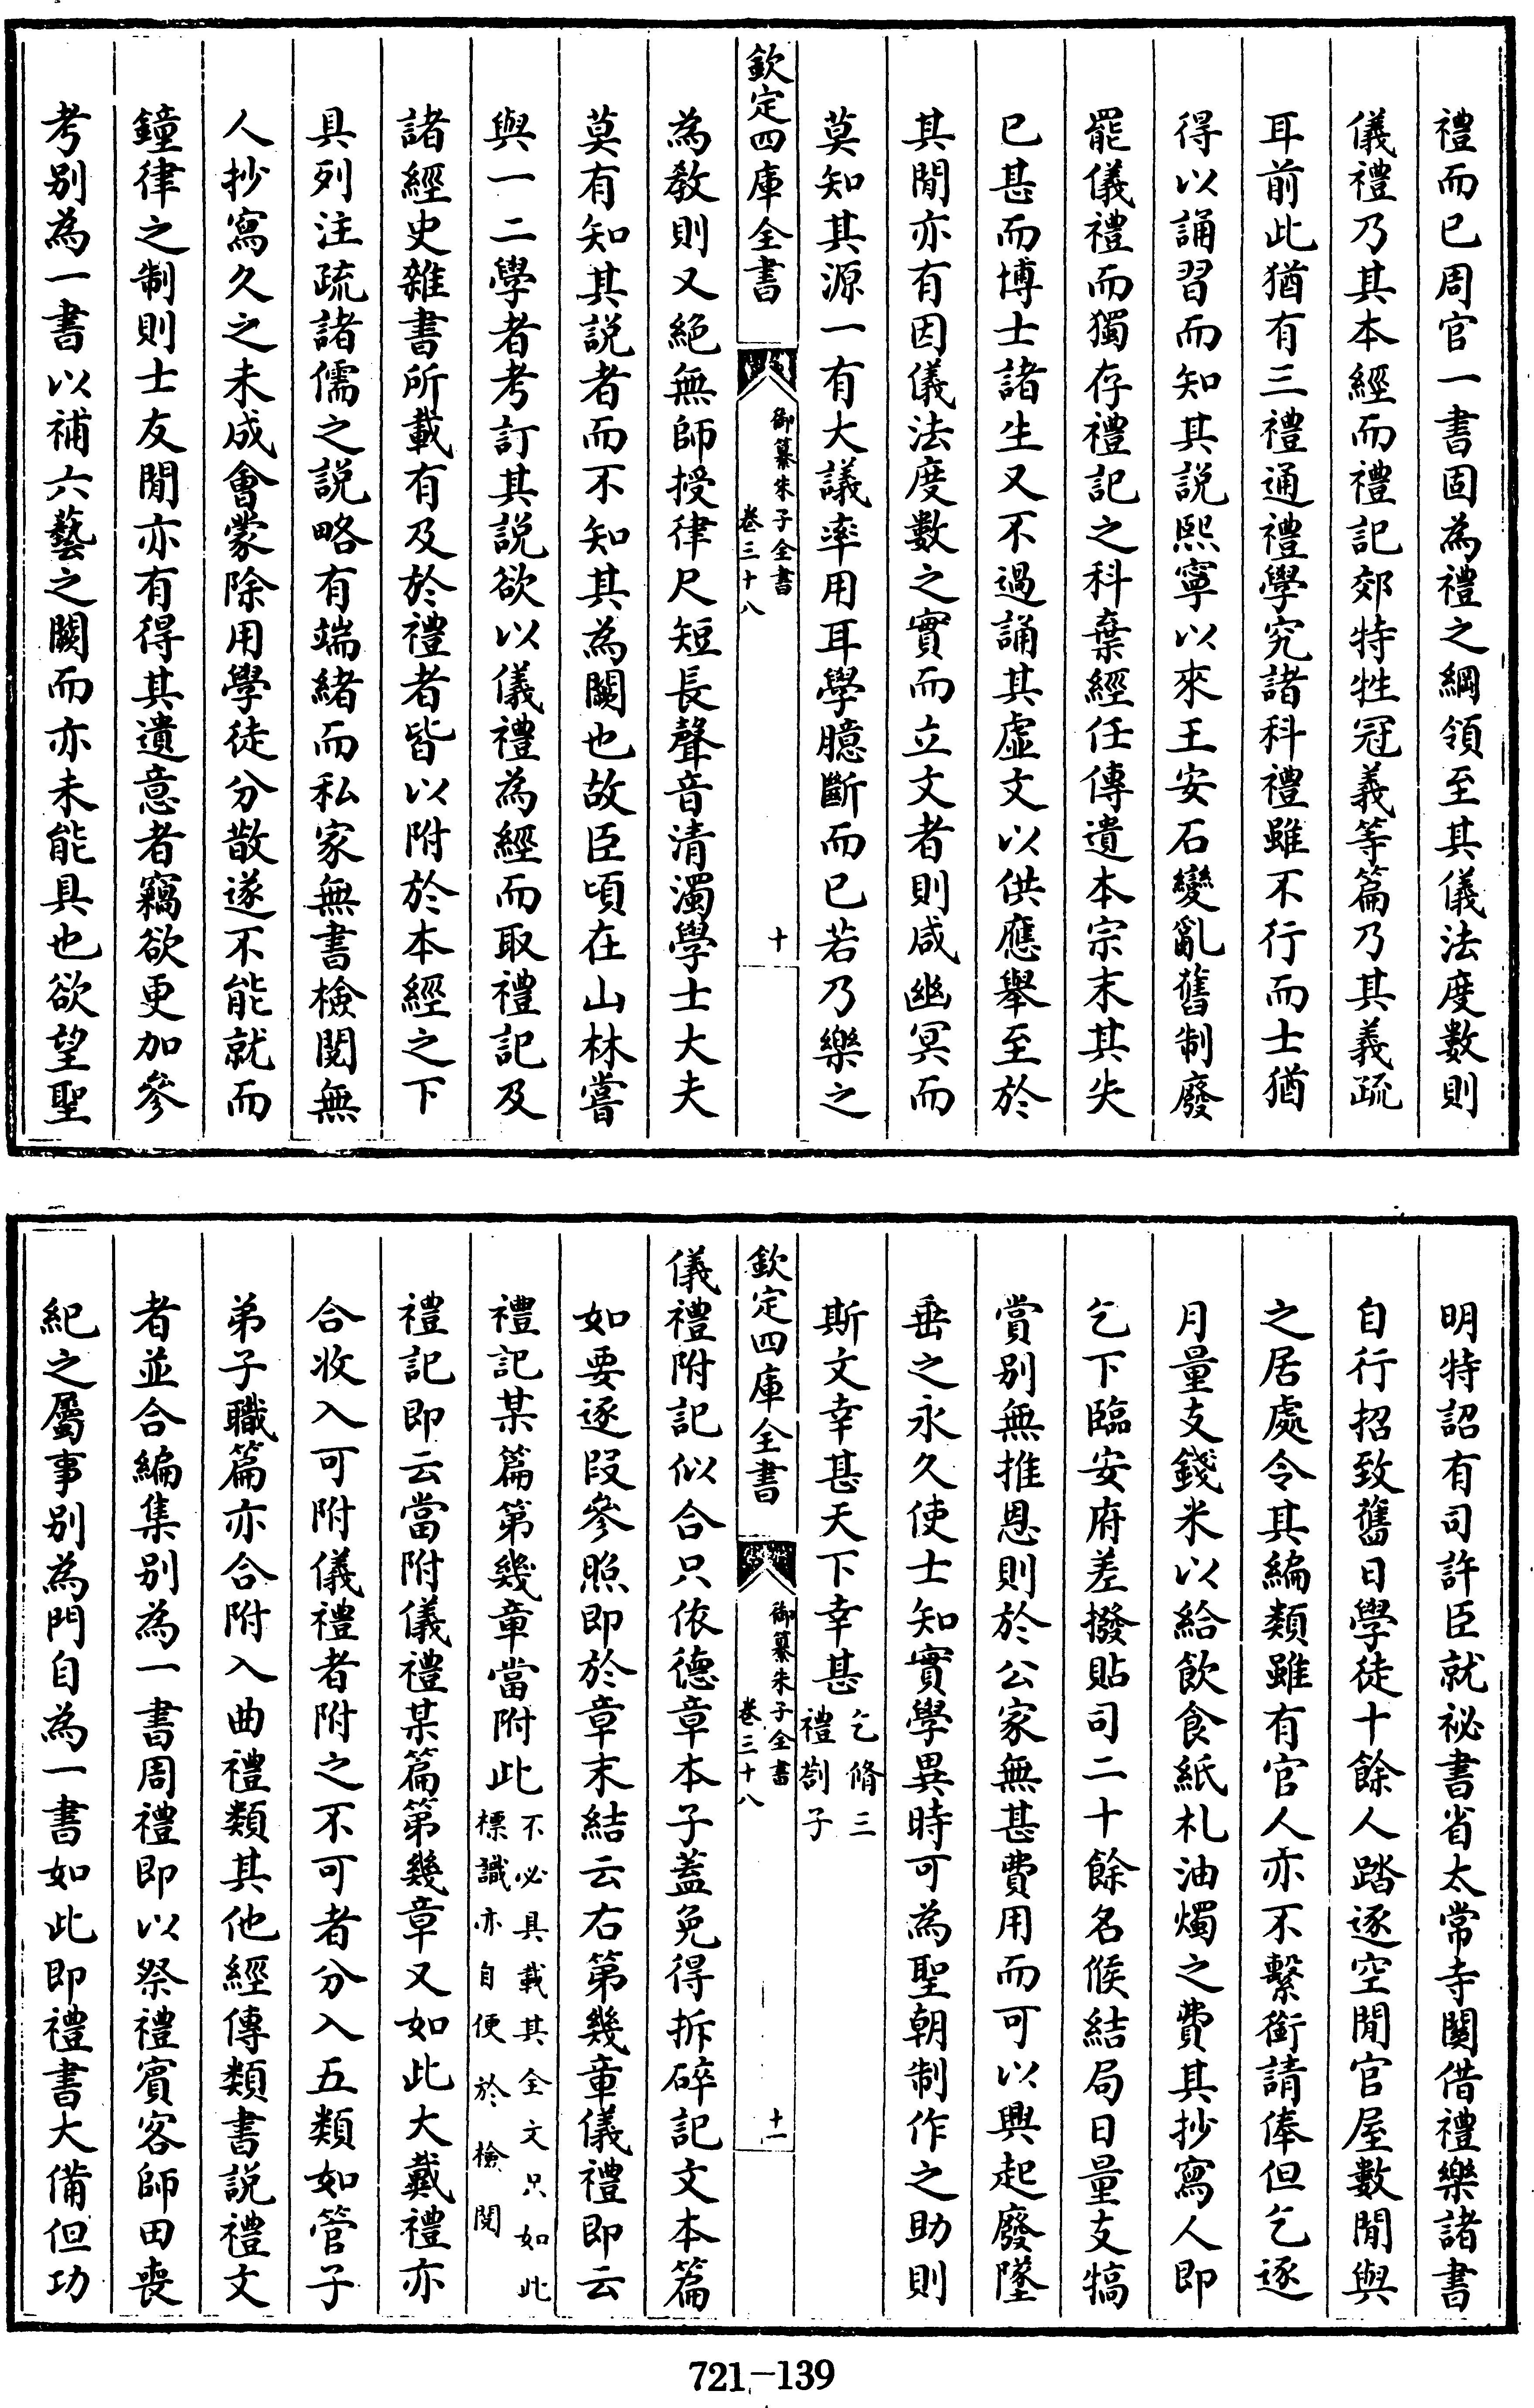 禮而已周官一書固為禮之綱領至其儀法度數則
儀禮乃其本經而禮記郊特牲冠義等篇乃其義疏
耳前此猶有三禮通禮學究諸科禮雖不行而士猶
得以誦習而知其說熙寧以來王安石變亂舊制廢
罷儀禮而獨存禮記之科棄經任傳遺本宗末其失
已甚而博士諸生又不過誦其虛文以供應舉至於
其閒亦有因儀法度數之實而立文者則咸幽冥而
莫知其源一有大議率用耳學臆斷而已若乃樂之
欽定四庫全書
御纂朱子全書
卷三十八
十
為教則又絕無師授律尺短長聲音清濁學士大夫
莫有知其說者而不知其為闕也故臣頃在山林嘗
與一二學者考訂其說欲以儀禮為經而取禮記及
諸經史雜書所載有及於禮者皆以附於本經之下
具列注疏諸儒之說略有端緒而私家無書檢閱無
人抄寫久之未成會蒙除用學徒分散遂不能就而
鐘律之制則士友閒亦有得其遺意者竊欲更加參
考別為一書以補六藝之闕而亦未能具也欲望聖
明特詔有司許臣就祕書省太常寺關借禮樂諸書
自行招致舊日學徒十餘人踏逐空閒官屋數閒與
之居處令其編類雖有官人亦不繫銜請俸但乞逐
月量支錢米以給飲食紙札油燭之費其抄寫人即
乞下臨安府差撥貼司二十餘名候結局日量支犒
賞別無推恩則於公家無甚費用而可以興起廢墜
垂之永久使士知實學異時可為聖朝制作之助則
斯文幸甚天下幸甚乞脩三
禮劄子
欽定四庫全書
御纂朱子全書
卷三十八
十一
儀禮附記似合只依德章本子蓋免得拆碎記文本篇
如要逐段參照即於章末結云右第幾章儀禮即云
禮記某篇第幾章當附此不必具載其全文只如此
標識亦自便於檢閱
禮記即云當附儀禮某篇第幾章又如此大戴禮亦
合收入可附儀禮者附之不可者分入五類如管子
弟子職篇亦合附入曲禮類其他經傳類書說禮文
者並合編集別為一書周禮即以祭禮賓客師田喪
紀之屬事別為門自為一書如此即禮書大備但功
721-139